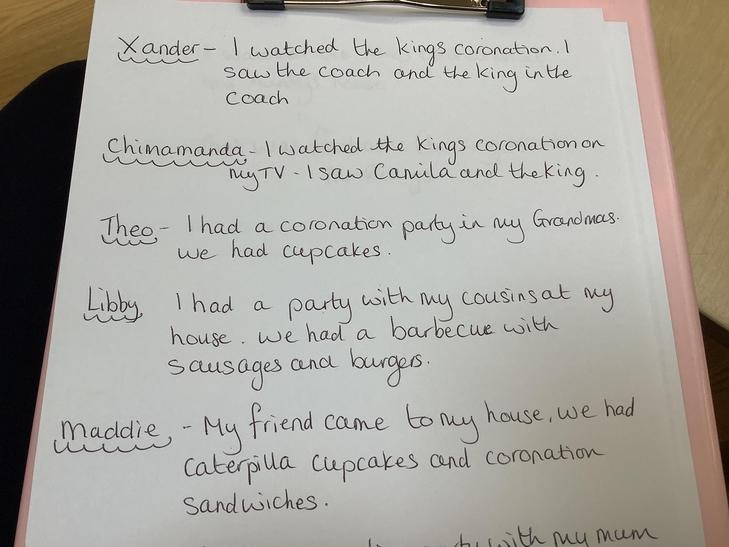 Xander - I watched the kings coronation. I
saw the coach and the king in the
coach
Chimamanda - I watched the kings coronation on
my TV - I saw Camila and the king.
Theo - I had a coronation party in my Grandmas.
we had cupcakes.
Libby I had a party with my cousins at my
house. we had a barbecue with
sausages and burgers.
Maddie - My friend came to my house, we had
caterpilla cupcakes and coronation
sandwiches.
with my mum